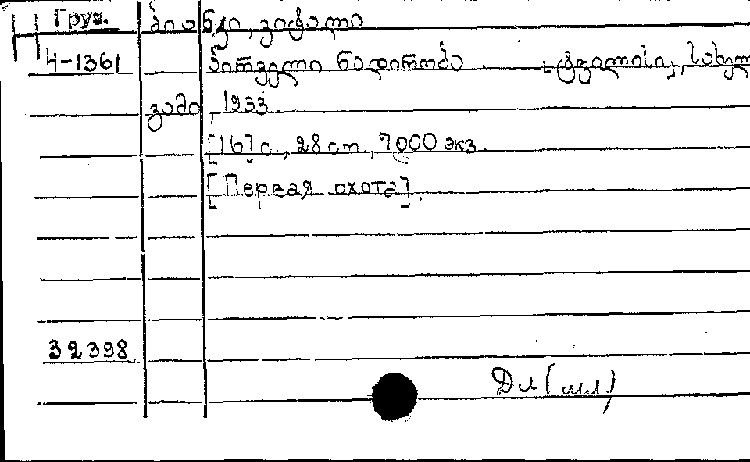 Груз. ბიანკი, ვიტალი
Ч-1361 პირველი ნადირობა ტფილისი, სახელ
გამი, 1933.
[16] с., 28 cm., 7000 экз.
[Первая охота].
32398
Дл (мл)